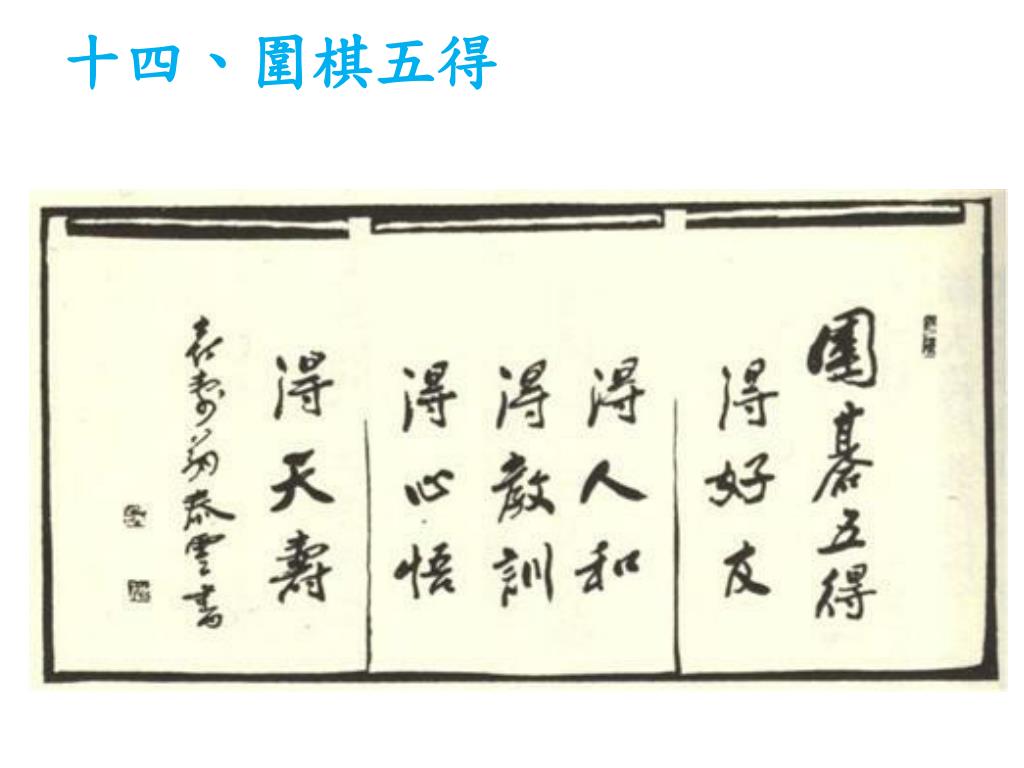 十四、圍棋五得
圍碁五得
得好友
得人和
得教訓
得心悟
得天壽
泰雲書